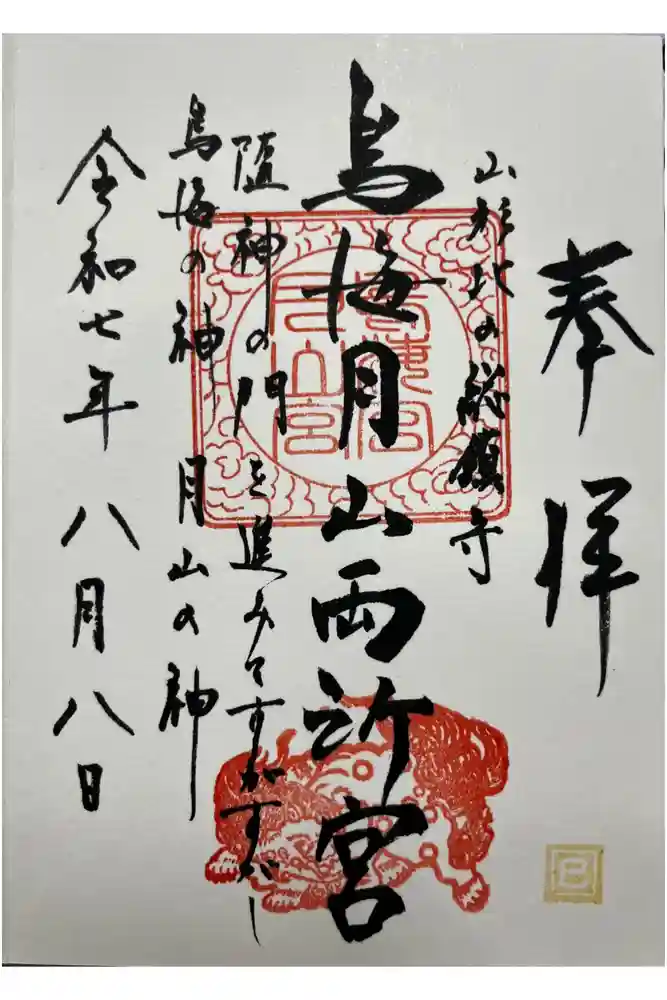 奉拝
山形北の総鎮守
鳥海月山両所宮
随神の門を進みてすがすがし
鳥海の神 月山の神
令和七年 八月八日
巳